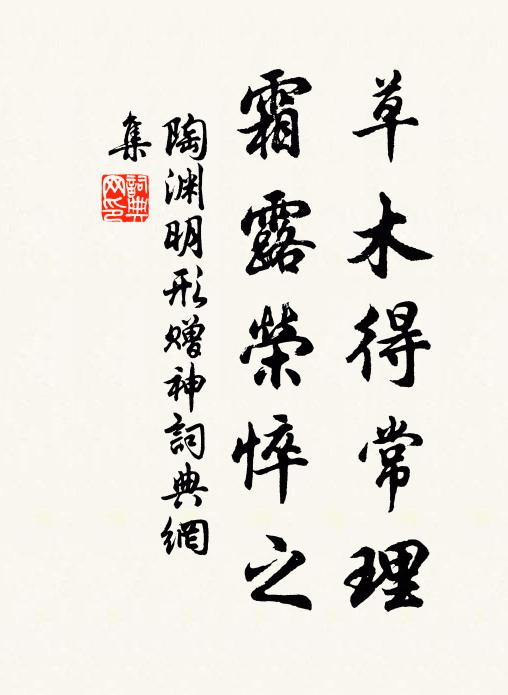 草木得常理
霜露榮悴之
陶渊明形赠神詞典網
集
詞典网印